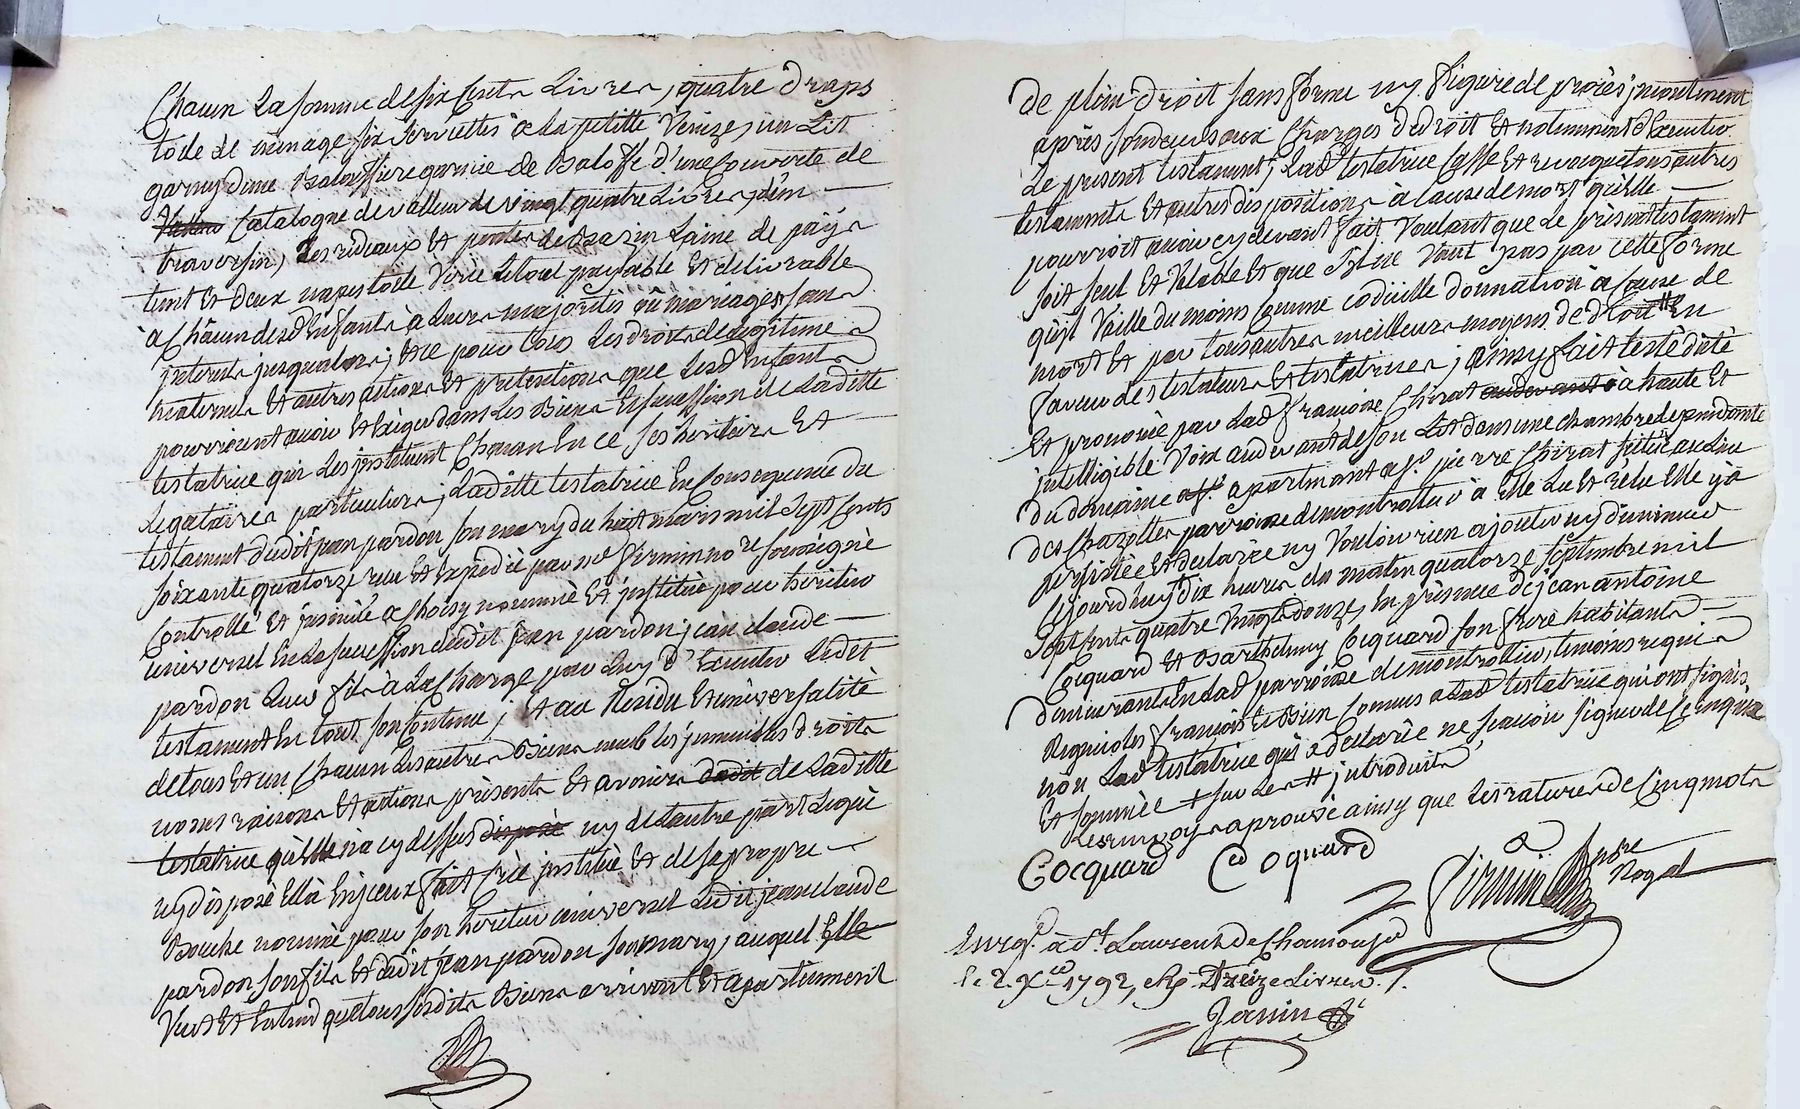 Chacun La somme de six Cents Livres, quatre draps
toile de menage six serviettes a La petitte Venize, un Lit
garny d'une Baloffiere garnie de Baloffe d'une Couverte de
Catalogne de valleur de vingt quatre Livres, d'un
traversin, des rideaux et pentes de Cazin Laine de pays
teint Et deux napes toile Verie Le tout payable Et delivrable
à Chacun desd Enfants à Leurs majorités où mariages sans
interets jusqu'alors, Et ce pour tous Les droits de Legitime
maternels Et autres actions Et pretentions que Lesd Enfants
pourrioient avoir Et Exiger dans Les Biens Et succession de Laditte
testatrice qui Les instituent Chacun En ce ses heritiers Et
Legataires particuliers, Laditte testatrice En Consequence du
testament dudit jean pardon son mary du huit mars mil Sept Cents
soixante quatorze reçu Et Expedié par me Firmin nore soussigné
Controllé Et insinué a Choisy nommé Et institué pour heritier
universel En La succession dudit jean pardon, jean claude
pardon Leur fils à La Charge par Luy d'Executer Ledit
testament En tout son Contenu, Et au Residu Et universalité
de tous Et un Chacun Les autres Biens meubles immeubles droits
noms raisons Et actions présents Et avenirs dudit de Laditte
testatrice qu'elle n'a cy dessus disposé ny de L'autre part Legué
ny disposé Ellà En iceux fait Créé institué Et de sa propre
Bouche nommé pour son heritier universel Ledit jean claude
pardon son fils Et dudit jean pardon son mary, auquel Elle
Veut Et Entend que tous sesdits Biens arrivent Et apartiennent
de plein droit sans forme ny figure de procès, incontinent
après son decès aux Charges de droit Et notemment d'Executer
Le present testament, Lad testatrice Casse Et revoque tous autres
testaments Et autres dispositions à cause de mort qu'elle
pourroit avoir cy devant fait Voulant que Le présent testament
soit seul Et Valable Et que s'il ne Vaut pas par cette forme
qu'il Vaille du moins Comme codicille donnation à Cause de
mort Et par tous autres meilleurs moyens de droit En
faveur des testateurs Et testatrices, ainsy fait testé dicté
Et prononcé par Lad Françoise Chirat au devant à haute Et
intelligible Voix au devant de son Lit dans une chambre dependante
du domaine apartenant a Sr pierre Chirat scitué au Lieu
des Chazottes parroisse de montrottier à Elle Lu Et relu Elle y a
persistée Et declarée ny Vouloir rien ajouter ny diminuer
Cejourd'huy dix heures du matin quatorze Septembre mil
sept Cents quatre Vingt douze, En présence de jean antoine
Cocquard Et Barthelemy Cocquard son frere habitants
demeurants En Lad parroisse de montrottier, temoins requis
Regnicoles François Et Bien Connus a Lad testatrice qui ont signés
non Lad testatrice qui a declarée ne sçavoir signer de Ce Enquise
Et sommée + sur Les introduits
Les renvoys aprouvé ainsy que Les ratures de Cinq mots
Cocquard Coquard Firmin nore Royal
Enregé à St. Laurent de Chamousset
le 2. Xbre 1792, Reçu Treize Livres.
Janin